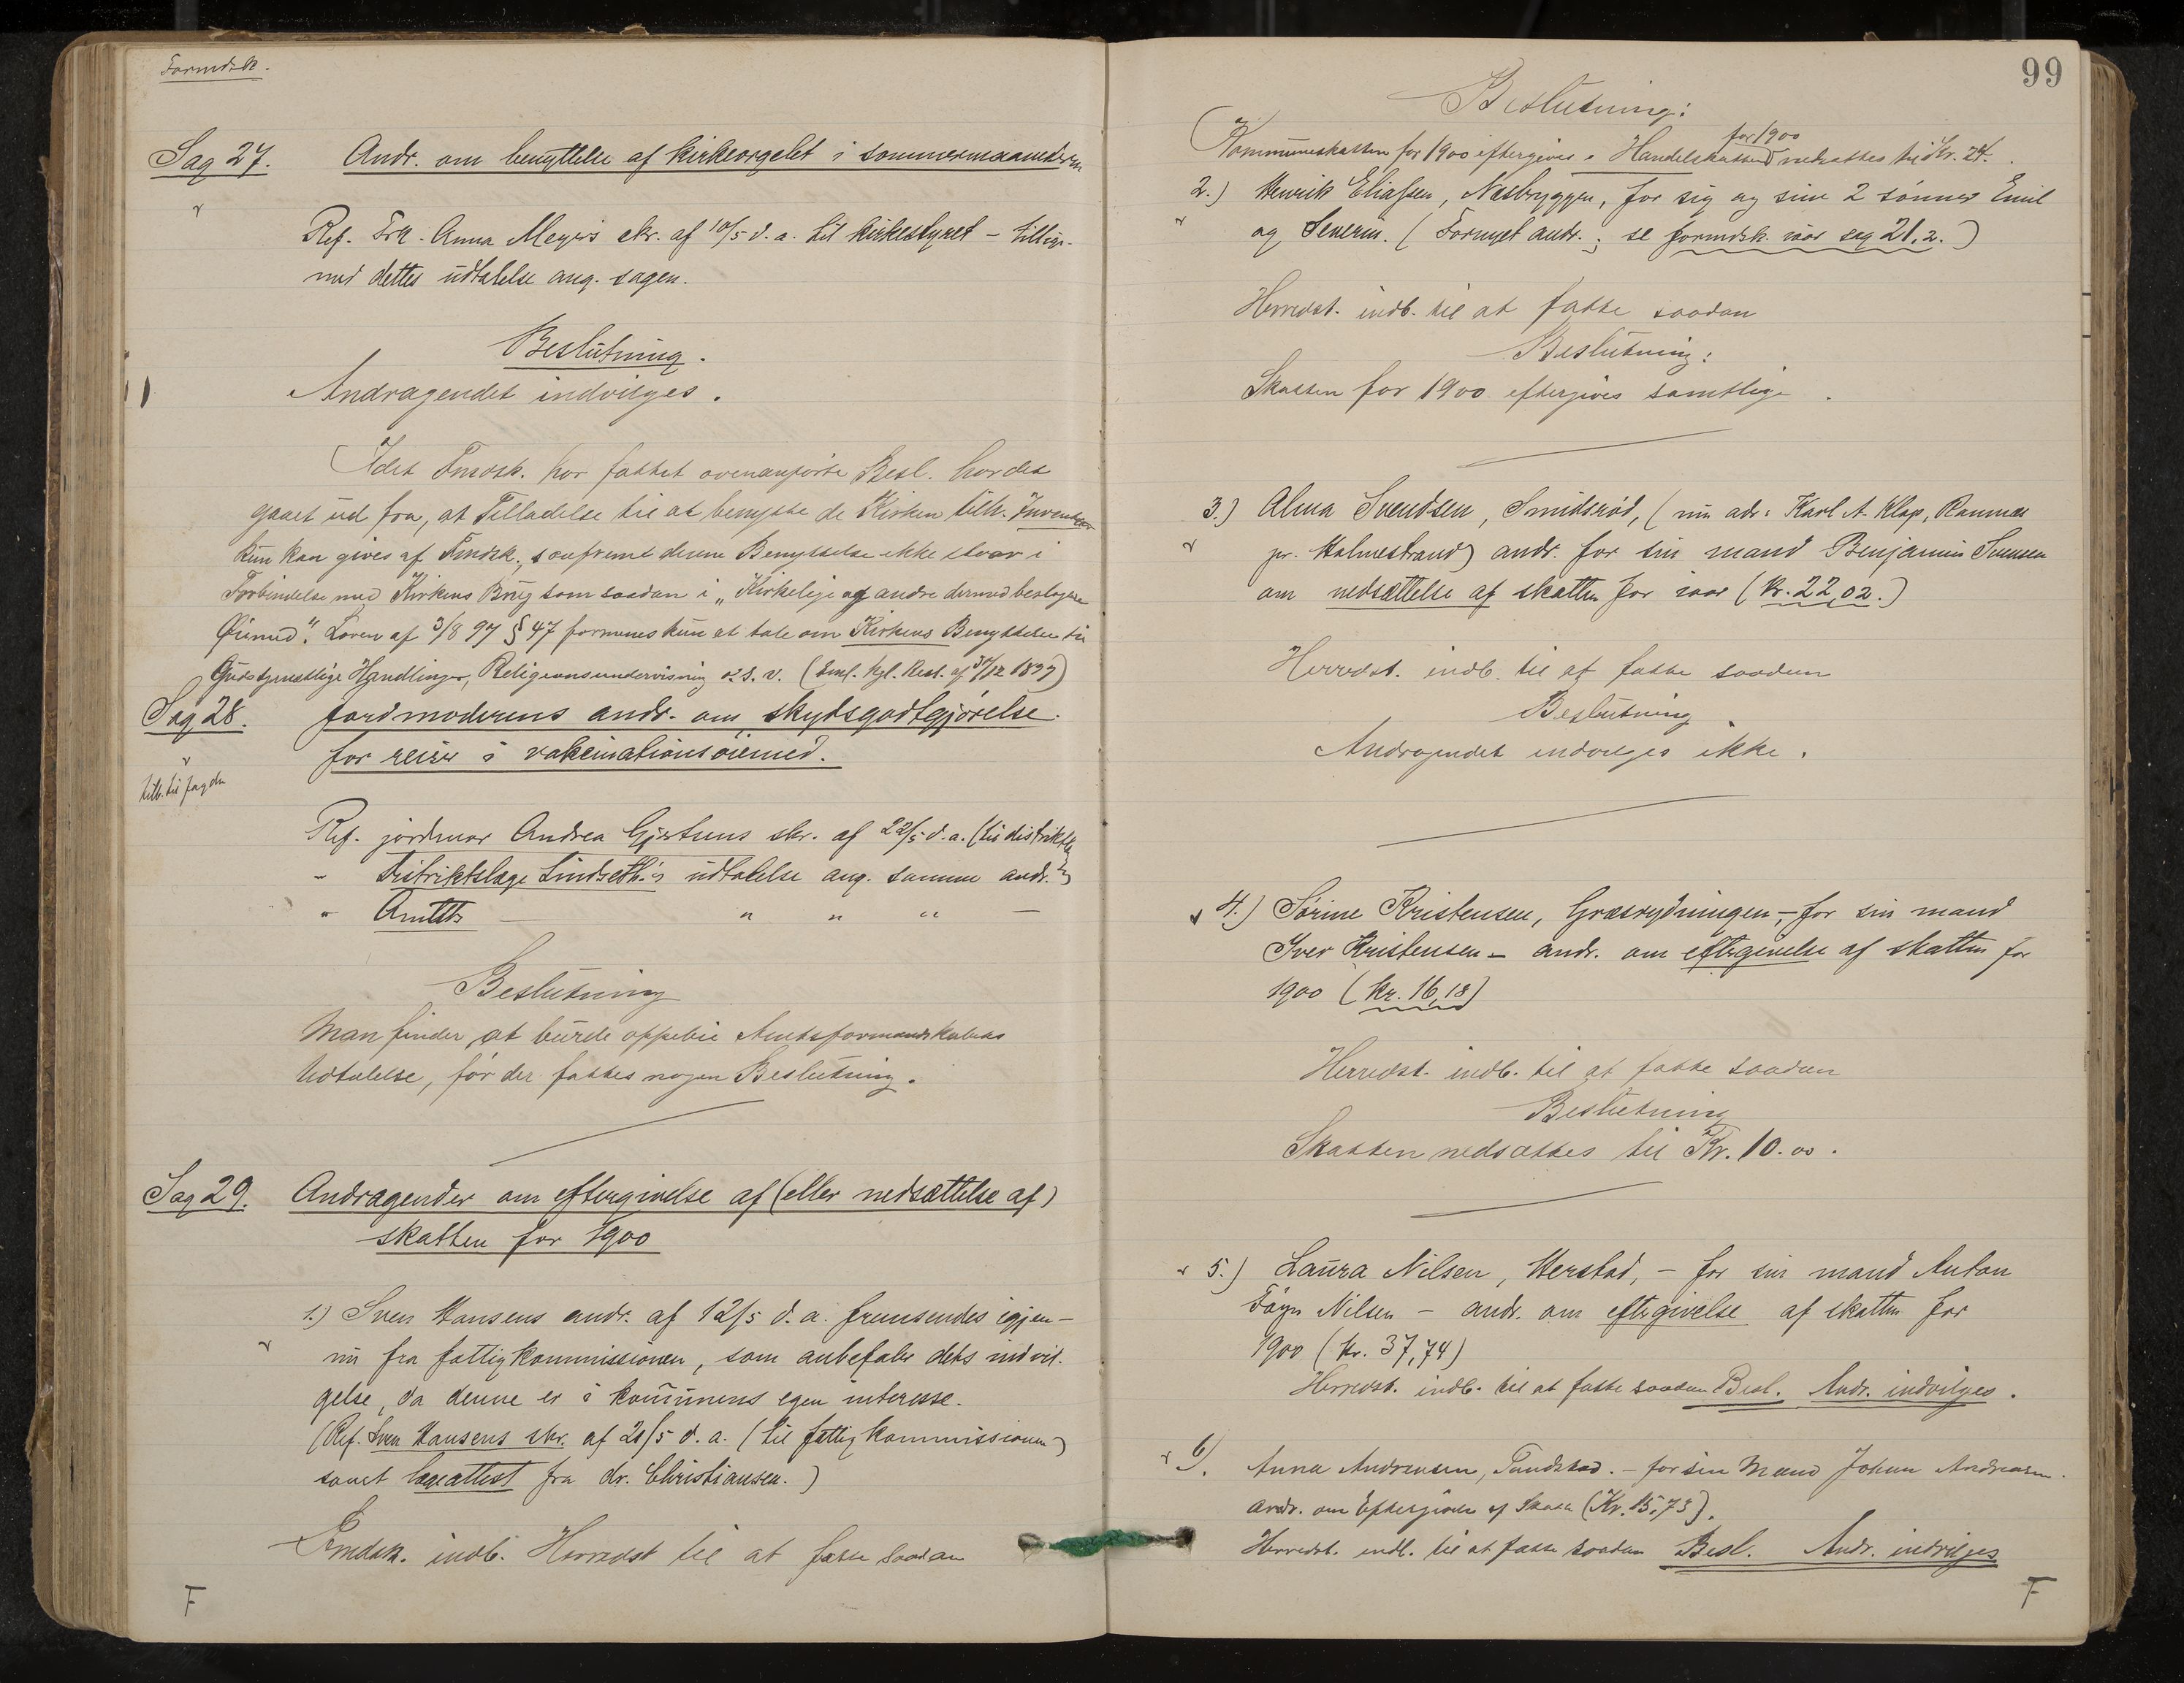 Formdsk.
Sag 27. Andr. om benyttelse af kirkeorgelet i sommermaanederne
Ref. Frk. Anna Meyers skr. af 10/5 d.a. til kirkestyret – tillige-
med dettes udtalelse ang. sagen.
Beslutning.
Andragendet indvilges.
Idet Fmdsk. har fattet ovenanførte Besl. har det
gaaet ud fra, at Tilladelse til at benytte de Kirken tilh. Inventar
kun kan gives af Fmdsk., saafremt denne Benyttelse ikke staar i
Forbindelse med Kirkens Brug som saadan i „Kirkelige og andre dermed beslægtede
Øiemed". Loven af 3/8 97 § 47 formenes kun at tale om Kirkens Benyttelse til
Gudstjenstlige Handlinger, Religionsundervisning o.s.v. (Sml. Kgl. Res. af 31/12 1897)
Sag 28. Jordmoderens andr. om skydsgodtgjørelse
for reiser i vakcinationsøiemed.
tilb. til fogden
Ref. jordmor Andrea Gjertsens skr. af 22/5 d.a. (til distriktslg.)
– Distriktslæge Lindseth's udtalelse ang. samme andr.
" Amtets — " " " —
Beslutning
Man finder at burde oppebie Amtsformandskabets
Udtalelse, før der fattes nogen Beslutning.
Sag 29. Andragender om eftergivelse af (eller nedsættelse af)
skatten for 1900
1.) Sven Hansens andr. af 12/5 d.a. fremsendes igjen-
nem fra fattigkommissionen, som anbefaler dets indvil-
gelse, da denne er i kommunens egen interesse.
(Ref. Sven Hansens skr. af 21/5 d.a. (til fattigkommissionen)
samt lægeattest fra dr. Christiansen.)
Fmdsk. indb. Herredst til at fatte saadan
F
99
Beslutning:
for 1900
Kommuneskatten for 1900 eftergives. Handelskatten nedsættes til Kr. 24.
2.) Henrik Eliassen, Næsbryggen, for sig og sine 2 sønner Emil
og Severin. (Fornyet andr.; se formdsk. iaar sag 21,2.)
Herredst. indb. til at fatte saadan
Beslutning:
Skatten for 1900 eftergives samtlige.
3.) Alma Svendsen, Smidsrød, (nu adr: Karl A. Klap, Ramnæs
pr. Holmestrand) andr. for sin mand Benjamin Svensen
om nedsættelse af skatten for iaar (kr. 22,02.)
Herredst. indb. til at fatte saadan
Beslutning.
Andragendet indvilges ikke.
4.) Sørine Kristensen, Græsrydningen, – for sin mand
Iver Kristensen – andr. om eftergivelse af skatten for
1900 (kr. 16,18)
Herredst. indb. til at fatte saadan
Beslutning
Skatten nedsættes til Kr. 10.00.
5.) Laura Nilsen, Herstad, – for sin mand Anton
Føyn Nilsen – andr. om eftergivelse af skatten for
1900 (kr. 37,74)
Herredst. indb. til at fatte saadan Besl. Andr. indvilges.
6). Anna Andreasen, Tandstad. – for sin Mand Johan Andreasen.
andr. om Eftergivelse af Skatten (Kr. 15,73).
Herredst. indb. til at fatte saadan Besl. Andr. indvilges
F